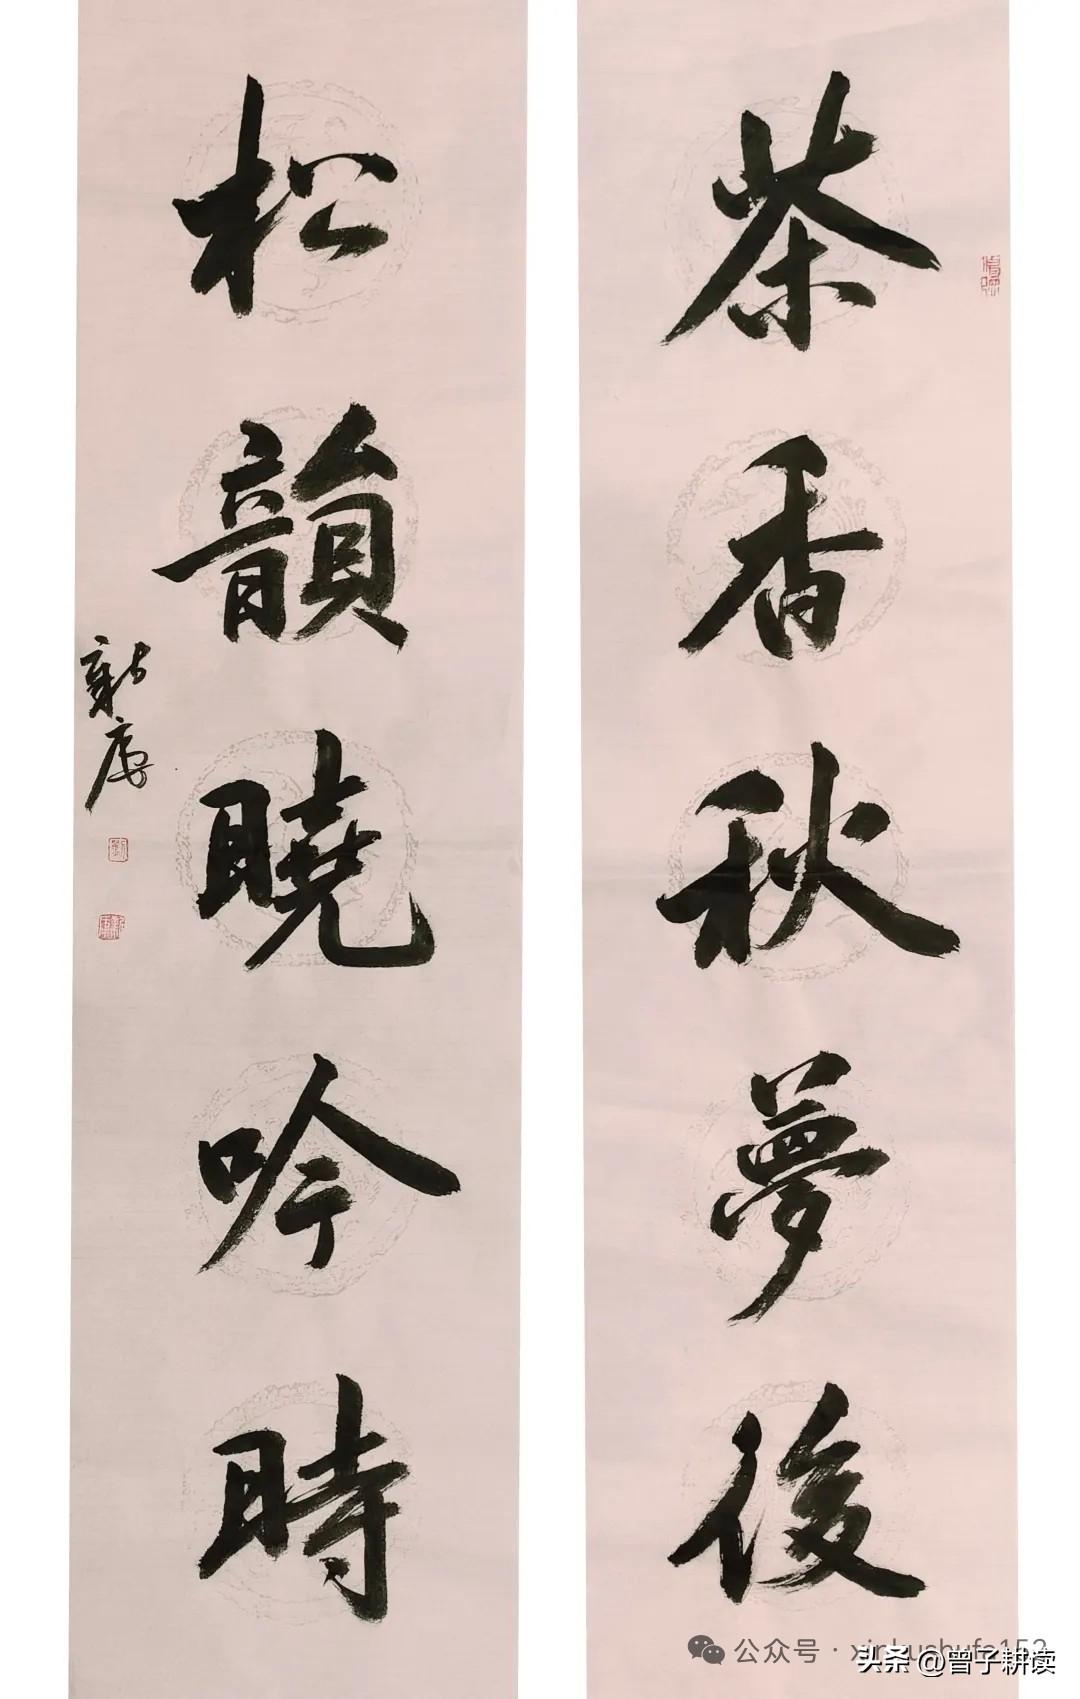 茶香秋夢後
松韻曉吟時
新庫
公众号 · xinkushufa152
头条 @曾子耕读